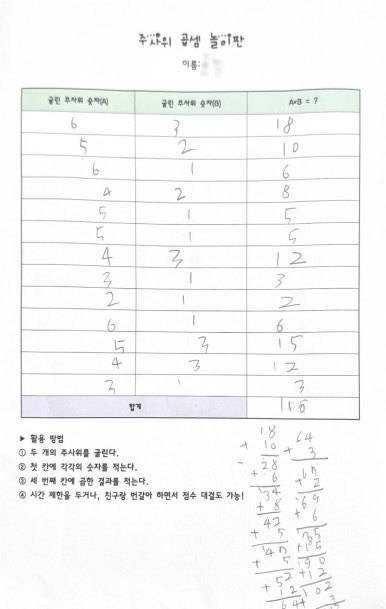 주사위 곱셈 놀이판
이름:
굴린 주사위 숫자(A) 굴린 주사위 숫자(B) A×B = ?
6 3 18
5 2 10
6 1 6
4 2 8
5 1 5
5 1 5
4 3 12
3 1 3
2 1 2
6 1 6
5 3 15
4 3 12
3 1 3
합계
▶ 활용 방법
① 두 개의 주사위를 굴린다.
② 첫 칸에 각각의 숫자를 적는다.
③ 세 번째 칸에 곱한 결과를 적는다.
④ 시간 제한을 두거나, 친구랑 번갈아 하면서 점수 대결도 가능!
18 64
+ 10 + 3
28 67
+ 6 + 2
34 69
+ 8 + 6
42
+ 5 + 15
47 90
+ 5 + 12
52 102
+ 12 + 3
64